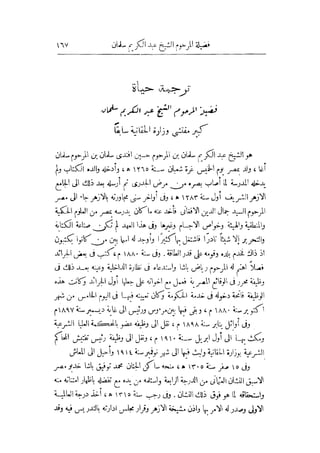 فضيلة المرحوم الشيخ عبد الكريم سلمان ١٦٧
ترجمة حياة
فضيلة المرحوم الشيخ عبد الكريم سلمان
كبير مفتشي وزارة الحقانية سابقاً
هو الشيخ عبد الكريم سلمان بن المرحوم حسين افندى سلمان بن المرحوم سلمان
أغا، ولد بمصر يوم الخميس غرة شعبان سنة ١٢٦٥ ه، وأدخله والده الكتاب ولم
يدخله المدرسة لما أصاب بصره من مرض الجدرى ثم أرسله بعد ذلك الى الجامع
الازهر الشريف أول سنة ١٢٨٣ ه، وفى أواخر سنى مجاورته بالازهر جاء الى مصر
المرحوم السيد جمال الدين الافغانى فأخذ عنه ما كان يدرسه بمصر من العلوم الحكمية
والمنطقية والهيئة وخواص الاجسام وغيرها وفى هذا العهد لم تكن صناعة الكتابة
والتحرير إلا شيئاً نادرًا فاشتغل بها كثيرًا وأوجد له اسما بين من كانوا يكتبون
اذ ذاك لخدم بلاده وقومه على قدر الطاقة. وفى سنة ١٨٨٠ م كتب فى بعض الجرائد
فصلاً اهتم له المرحوم رياض باشا واستدعاه فى نظارة الداخلية وعينه بعد ذلك فى
وظيفة محرر فى الوقائع المصرية فعمل مع اخوانه على جعلها أول الجرائد وكانت هذه
الوظيفة فاتحة دخوله فى خدمة الحكومة وكان تعيينه فيها فى اليوم الخامس من شهر
اكتوبر سنة ١٨٨٠ م، وبقى فيها بين مرءوس ورئيس الى غاية ديسمبر سنة ١٨٩٧ م
وفى أوائل يناير سنة ١٨٩٨ م، نقل الى وظيفة عضو بالمحكمة العليا الشرعية
ومكث بها الى أول ابريل سنة ١٩١٠ م، ونقل الى وظيفة رئيس تفتيش المحاكم
الشرعية بوزارة الحقانية ولبث فيها الى شهر نوفمبر سنة ١٩١٤ وأحيل الى المعاش
وفى ١٥ صفر سنة ١٣٠٥ ه، منحه ساكن الجنان محمد توفيق باشا خديو مصر
الاسبق النشان العثمانى من الدرجة الرابعة واستلمه من يده مع تفضله باظهار امتنانه منه
واستحقاقه لما هو فوق ذلك النشان. وفى رجب سنة ١٣١٥ ه، أخذ درجة العالمية
الاولى وصدر له الامر بها واذن مشيخة الازهر وقرار مجلس ادارته بالتدريس فيه وقد